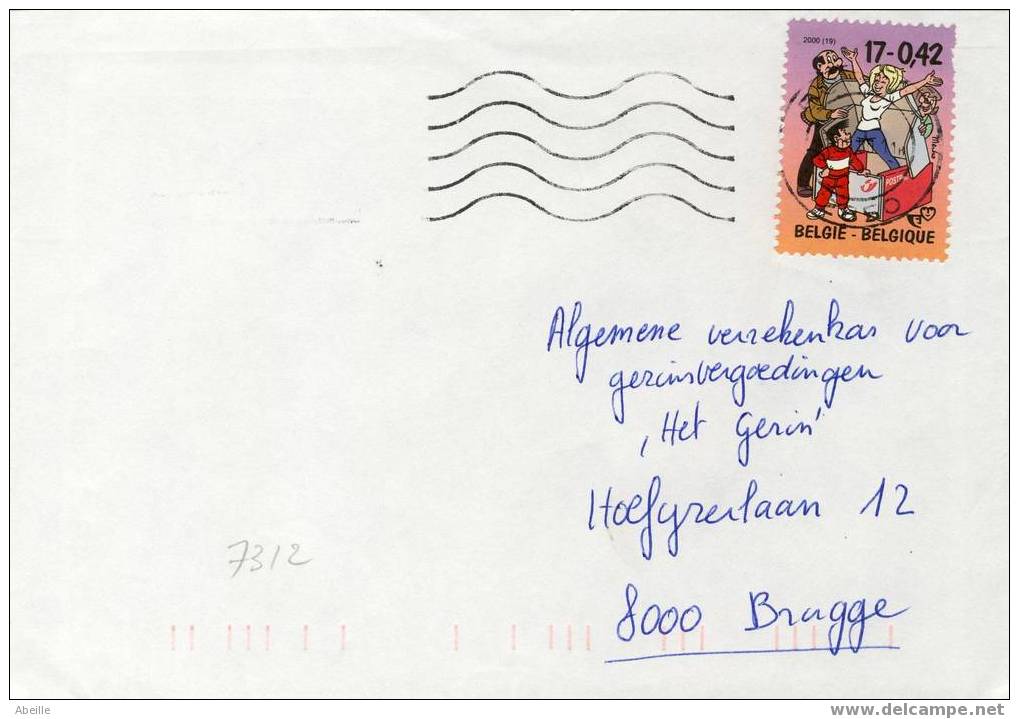 2000 (19)
17-0,42
POSTE
BELGIE - BELGIQUE
Algemene verrekenkas voor
gezinsvergoedingen
,Het Gezin'
Hoefyzerlaan 12
8000 Brugge
7312
Abeille
www.delcampe.net